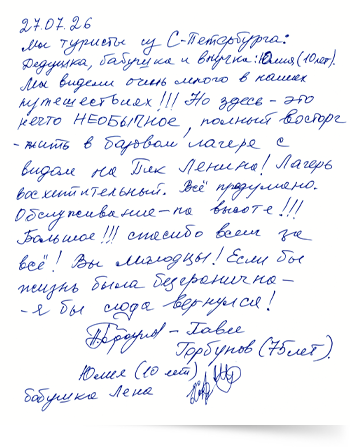 27.07.26
Мы туристы из С-Петербурга:
Дедушка, бабушка и внучка: Юлия (10 лет).
Мы видели очень много в наших
путешествиях!!! Но здесь – это
нечто НЕОБЫЧНОЕ, полный восторг
– жить в базовом лагере с
видом на Пик Ленина! Лагерь
восхитительный. Всё продумано.
Обслуживание – на высоте!!!
Большое!!! спасибо всем за
всё! Вы молодцы! Если бы
жизнь была безгранична –
– я бы сюда вернулся!
– Павел
Горбунов (75 лет).
Юлия (10 лет)
бабушка Лена